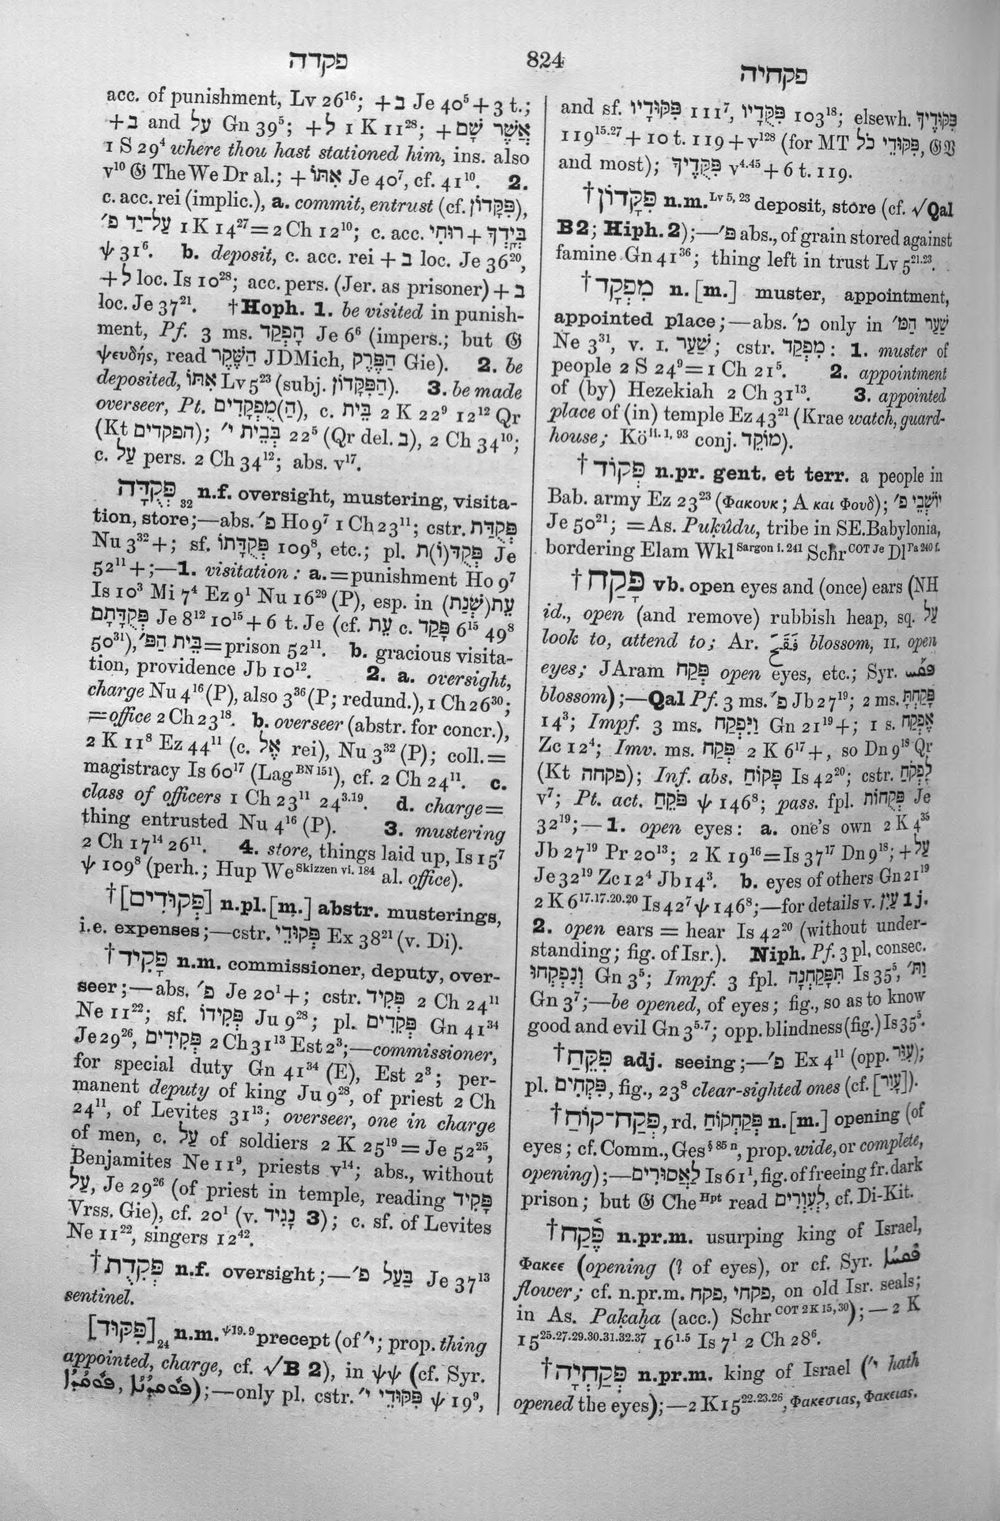 פקדה
824
פקחיה
acc. of punishment, Lv 26¹⁶; +ב Je 40⁵ + 3 t.;
+ב and על Gn 39⁵; +ל 1 K 11²⁸; +אֲשֶׁר שָׁם
1 S 29⁴ where thou hast stationed him, ins. also
v¹⁰ 𝔊 The We Dr al.; + אִתּוֹ Je 40⁷, cf. 41¹⁰. 2.
c. acc. rei (implic.), a. commit, entrust (cf. פִּקָּדוֹן),
פ׳ עַל־יַד 1 K 14²⁷=2 Ch 12¹⁰; c. acc. רוּחִי + בְּיָדְךָ
ψ 31⁶. b. deposit, c. acc. rei + ב loc. Je 36²⁰,
+ל loc. Is 10²⁸; acc. pers. (Jer. as prisoner) + ב
loc. Je 37²¹. †Hoph. 1. be visited in punish-
ment, Pf. 3 ms. הָפְקַד Je 6⁶ (impers.; but 𝔊
ψευδής, read הַשֶּׁקֶר JDMich, הַפֶּרֶק Gie). 2. be
deposited, אִתּוֹ Lv 5²³ (subj. הַפִּקָּדוֹן). 3. be made
overseer, Pt. (הַ)מֻפְקָדִים, c. בֵּית 2 K 22⁹ 12¹² Qr
(Kt הפקדים); בְּבֵית י׳ 22⁵ (Qr del. ב), 2 Ch 34¹⁰;
c. עַל pers. 2 Ch 34¹²; abs. v¹⁷.
פְּקֻדָּה ₃₂ n.f. oversight, mustering, visita-
tion, store;—abs. פ׳ Ho 9⁷ 1 Ch 23¹¹; cstr. פְּקֻדַּת
Nu 3³² +; sf. פְּקֻדָּתוֹ 109⁸, etc.; pl. פְּקֻדּ(וֹ)ת Je
52¹¹ +;—1. visitation: a.=punishment Ho 9⁷
Is 10³ Mi 7⁴ Ez 9¹ Nu 16²⁹ (P), esp. in עֵת(שְׁנַת)
פְּקֻדָּתָם Je 8¹² 10¹⁵ + 6 t. Je (cf. עֵת c. פָּקַד 6¹⁵ 49⁸
50³¹), בֵּית הַפּ׳=prison 52¹¹. b. gracious visita-
tion, providence Jb 10¹². 2. a. oversight,
charge Nu 4¹⁶ (P), also 3³⁶ (P; redund.), 1 Ch 26³⁰;
=office 2 Ch 23¹⁸. b. overseer (abstr. for concr.),
2 K 11⁸ Ez 44¹¹ (c. אֶל rei), Nu 3³² (P); coll.=
magistracy Is 60¹⁷ (Lag ᴮᴺ ¹⁵¹), cf. 2 Ch 24¹¹. c.
class of officers 1 Ch 23¹¹ 24³·¹⁹. d. charge=
thing entrusted Nu 4¹⁶ (P). 3. mustering
2 Ch 17¹⁴ 26¹¹. 4. store, things laid up, Is 15⁷
ψ 109⁸ (perh.; Hup We Skizzen vi. 184 al. office).
†[פְּקוּדִים] n.pl.[m.] abstr. musterings,
i.e. expenses;—cstr. פְּקוּדֵי Ex 38²¹ (v. Di).
†פָּקִיד n.m. commissioner, deputy, over-
seer;—abs. פ׳ Je 20¹ +; cstr. פְּקִיד 2 Ch 24¹¹
Ne 11²²; sf. פְּקִידוֹ Ju 9²⁸; pl. פְּקִדִים Gn 41³⁴
Je 29²⁶, פְּקִידִים 2 Ch 31¹³ Est 2³;—commissioner,
for special duty Gn 41³⁴ (E), Est 2³; per-
manent deputy of king Ju 9²⁸, of priest 2 Ch
24¹¹, of Levites 31¹³; overseer, one in charge
of men, c. עַל of soldiers 2 K 25¹⁹=Je 52²⁵,
Benjamites Ne 11⁹, priests v¹⁴; abs., without
עַל, Je 29²⁶ (of priest in temple, reading פָּקִיד
Vrss. Gie), cf. 20¹ (v. נָגִיד 3); c. sf. of Levites
Ne 11²², singers 12⁴².
†פְּקִדֻת n.f. oversight;—בַּעַל פ׳ Je 37¹³
sentinel.
[פִּקּוּד] ₂₄ n.m. ψ 19, 9 precept (of י׳; prop. thing
appointed, charge, cf. √B 2), in ψψ (cf. Syr.
);—only pl. cstr. פִּקּוּדֵי י׳ ψ 19⁹,
and sf. פִּקּוּדָיו 111⁷, פִּקֻּדָיו 103¹⁸; elsewh. פִּקּוּדֶיךָ
119¹⁵·²⁷ + 10 t. 119 + v¹²⁸ (for MT פִּקּוּדֵי כֹל, 𝔊𝔙
and most); פִּקֻּדֶיךָ v⁴·⁴⁵ + 6 t. 119.
†פִּקָּדוֹן n.m. Lv 5, 23 deposit, store (cf. √Qal
B 2; Hiph. 2);—פ׳ abs., of grain stored against
famine Gn 41³⁶; thing left in trust Lv 5²¹·²³.
†מִפְקָד n. [m.] muster, appointment,
appointed place;—abs. מ׳ only in שַׁעַר הַמּ׳
Ne 3³¹, v. I. שַׁעַר; cstr. מִפְקַד: 1. muster of
people 2 S 24⁹=1 Ch 21⁵. 2. appointment
of (by) Hezekiah 2 Ch 31¹³. 3. appointed
place of (in) temple Ez 43²¹ (Krae watch, guard-
house; Kö ii. 1, 93 conj. מוֹקֵד).
†פְּקוֹד n.pr. gent. et terr. a people in
Bab. army Ez 23²³ (Φακουκ; A και Φουδ); יוֹשְׁבֵי פ׳
Je 50²¹; =As. Puḳûdu, tribe in SE.Babylonia,
bordering Elam Wkl Sargon i. 241 Schr COT Je Dl Pa 240 f.
†פָּקַח vb. open eyes and (once) ears (NH
id., open (and remove) rubbish heap, sq. עַל
look to, attend to; Ar. فَقَحَ blossom, II. open
eyes; JAram פְּקַח open eyes, etc.; Syr. ܦܩܚ
blossom);—Qal Pf. 3 ms. פ׳ Jb 27¹⁹; 2 ms. פָּקַחְתָּ
14³; Impf. 3 ms. וַיִּפְקַח Gn 21¹⁹ +; 1 s. אֶפְקַח
Zc 12⁴; Imv. ms. פְּקַח 2 K 6¹⁷ +, so Dn 9¹⁸ Qr
(Kt פקחה); Inf. abs. פָּקוֹחַ Is 42²⁰; cstr. לִפְקֹחַ
v⁷; Pt. act. פֹּקֵחַ ψ 146⁸; pass. fpl. פְּקֻחוֹת Je
32¹⁹;—1. open eyes: a. one's own 2 K 4³⁵
Jb 27¹⁹ Pr 20¹³; 2 K 19¹⁶=Is 37¹⁷ Dn 9¹⁸; +עַל
Je 32¹⁹ Zc 12⁴ Jb 14³. b. eyes of others Gn 21¹⁹
2 K 6¹⁷·¹⁷·²⁰·²⁰ Is 42⁷ ψ 146⁸;—for details v. עַיִן 1 j.
2. open ears = hear Is 42²⁰ (without under-
standing; fig. of Isr.). Niph. Pf. 3 pl. consec.
וְנִפְקְחוּ Gn 3⁵; Impf. 3 fpl. תִּפָּקַחְנָה Is 35⁵, וַתּ׳
Gn 3⁷;—be opened, of eyes; fig., so as to know
good and evil Gn 3⁵·⁷; opp. blindness (fig.) Is 35⁵.
†פִּקֵּחַ adj. seeing;—פ׳ Ex 4¹¹ (opp. עִוֵּר);
pl. פִּקְחִים, fig., 23⁸ clear-sighted ones (cf. [עִוֵּר]).
†פְּקַח־קוֹחַ, rd. פְּקַחְקוֹחַ n. [m.] opening (of
eyes; cf. Comm., Ges § 85 n, prop. wide, or complete,
opening);—לַאֲסוּרִים Is 61¹, fig. of freeing fr. dark
prison; but 𝔊 Che Hpt read לְעִוְרִים, cf. Di-Kit.
†פֶּקַח n.pr.m. usurping king of Israel,
Φακεε (opening (? of eyes), or cf. Syr.
flower; cf. n.pr.m. פקחי, פקח, on old Isr. seals;
in As. Paḳaḥa (acc.) Schr COT 2 K 15, 30);—2 K
15²⁵·²⁷·²⁹·³⁰·³¹·³²·³⁷ 16¹·⁵ Is 7¹ 2 Ch 28⁶.
†פְּקַחְיָה n.pr.m. king of Israel (י׳ hath
opened the eyes);—2 K 15²²·²³·²⁶, Φακεσιας, Φακειας.